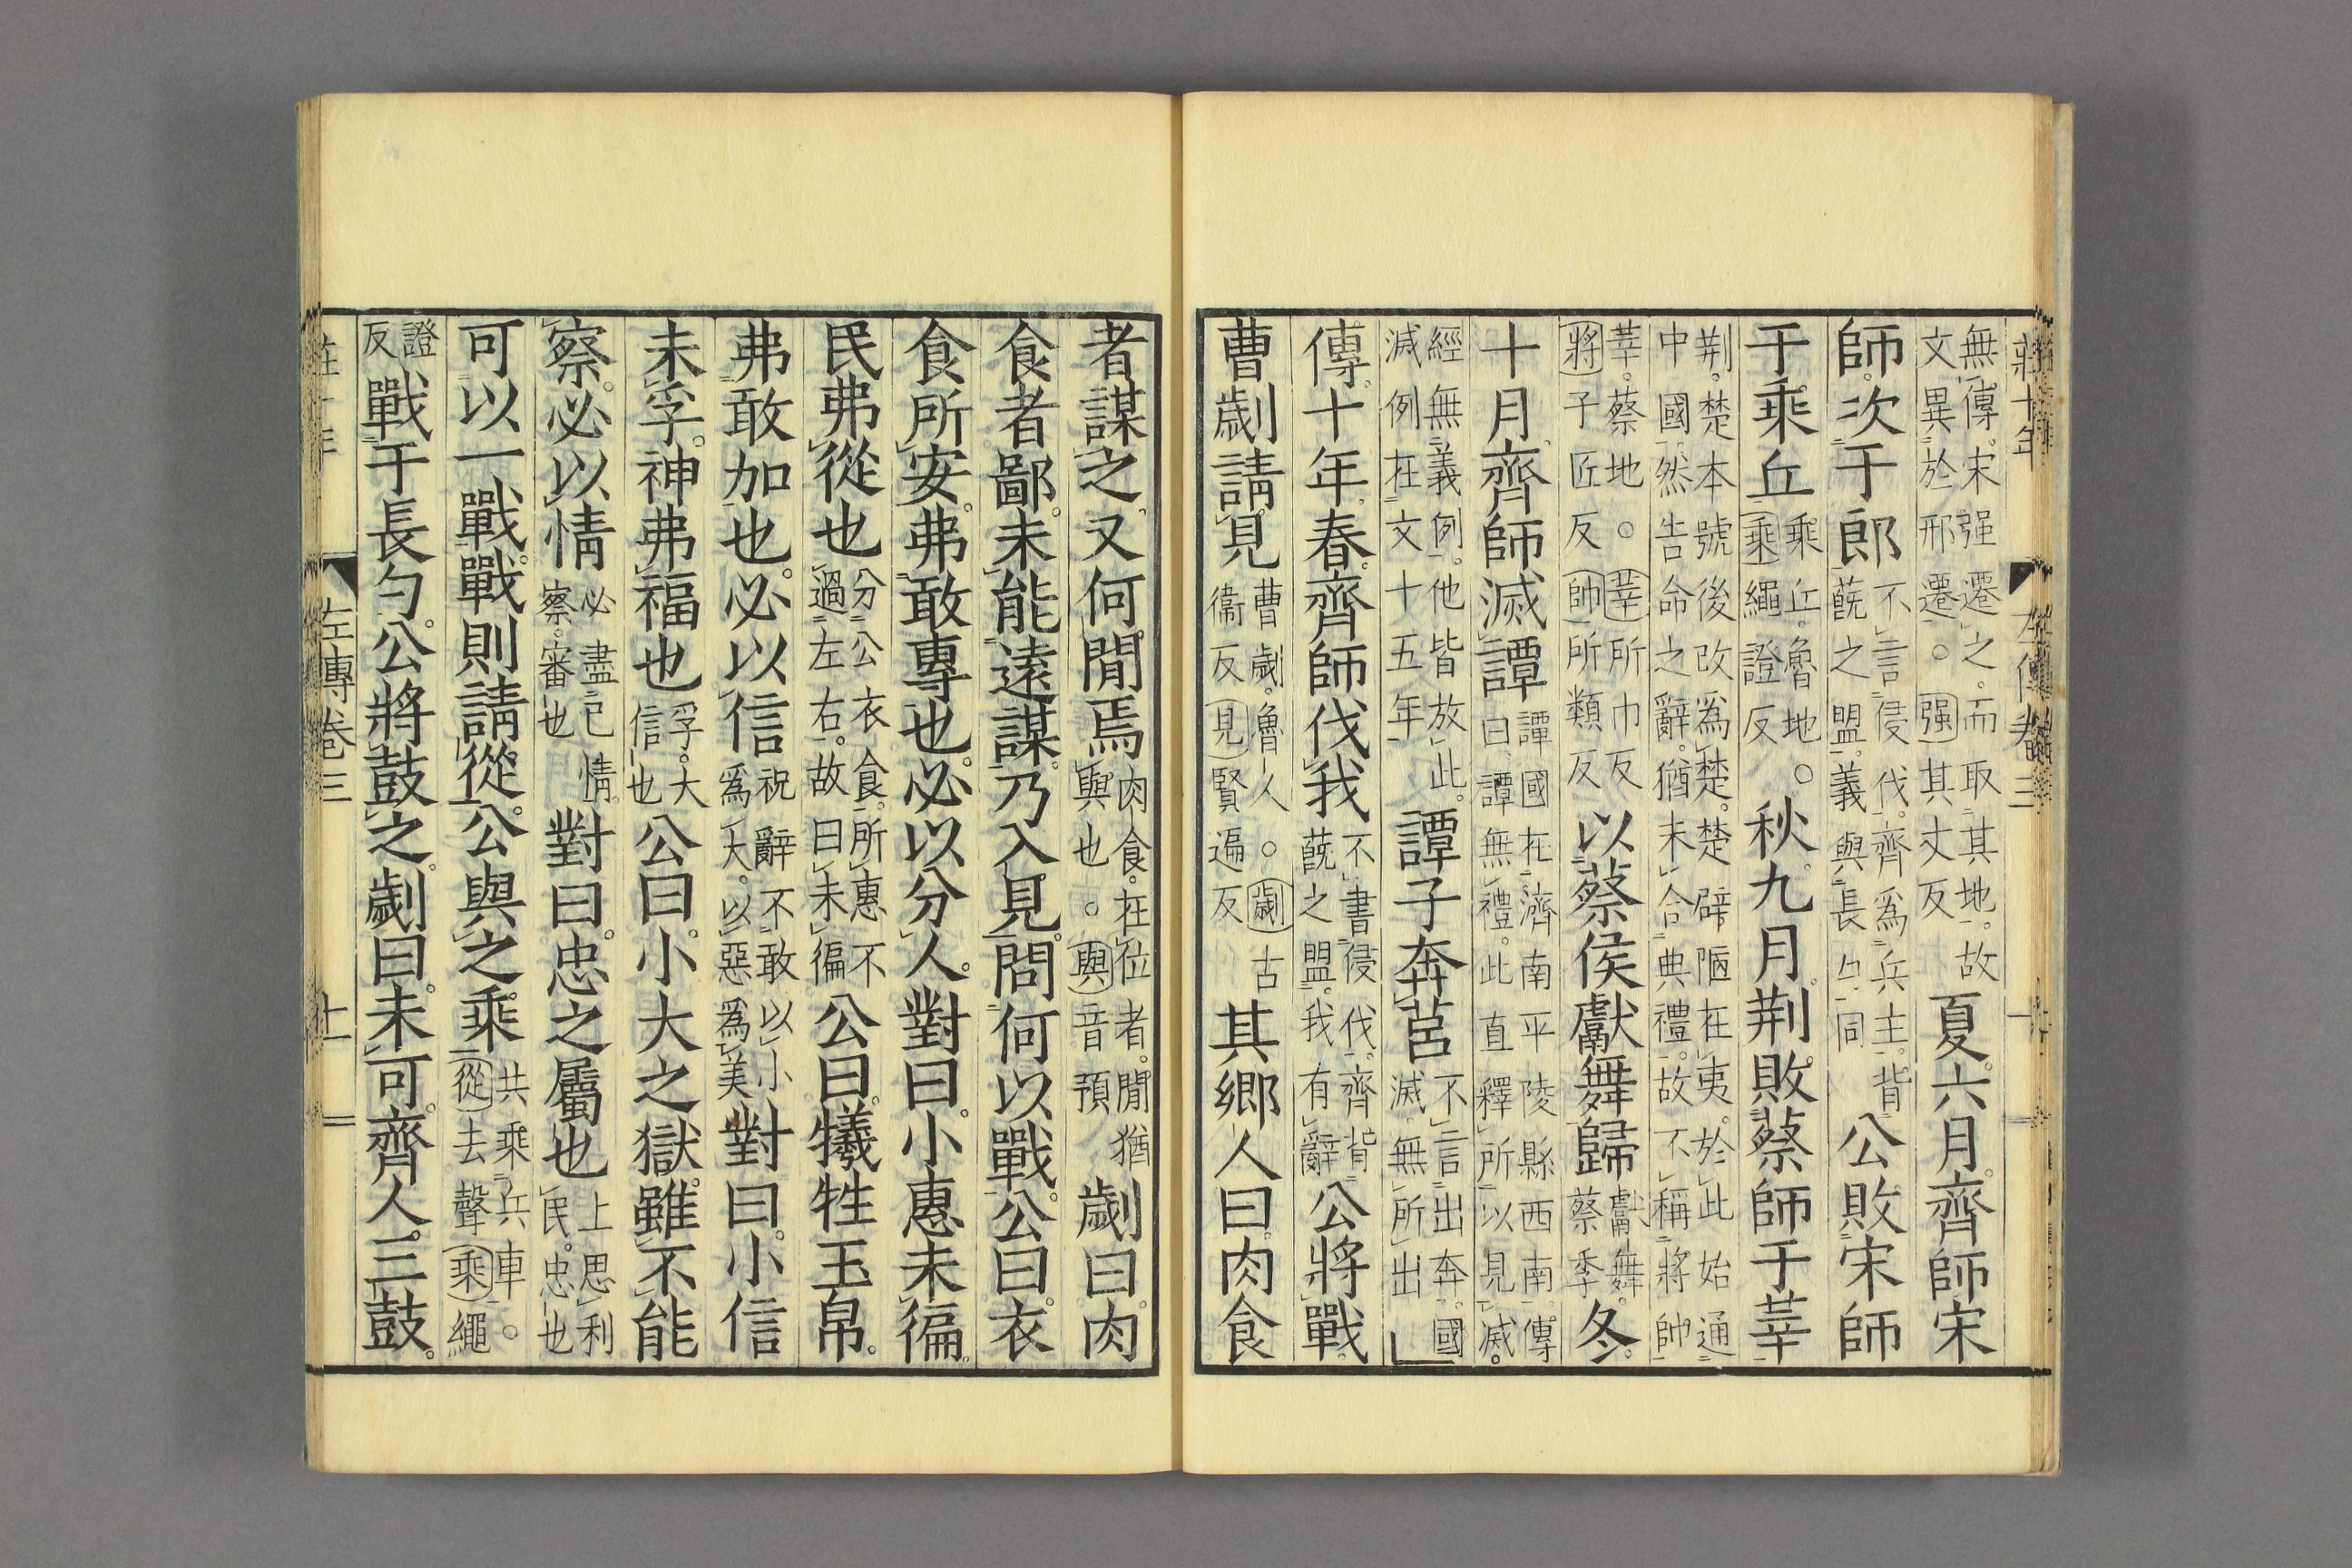 莊十年 左傳卷三
無傳。宋强遷之。而取其地。故文異於邢遷。○强其丈反 夏六月。齊師宋
師。次于郎 不言侵伐。齊爲兵主。背蔇之盟。義與長勺同 公敗宋師
于乘丘 乘丘。魯地。○乘繩證反 秋九月。荆敗蔡師于莘
荆。楚本號。後改爲楚。楚辟陋在夷。於此始通中國。然告命之辭。猶未合典禮。故不稱將帥
莘。蔡地。○莘所巾反將子匠反帥所類反 以蔡侯獻舞歸 獻舞。蔡季 冬。
十月。齊師滅譚 譚國在濟南平陵縣西南。傳曰。譚無禮。此直釋所以見滅。
經無義例。他皆放此。滅例在文十五年 譚子奔莒 不言出奔。國滅。無所出
傳。十年。春。齊師伐我 不書侵伐。齊背蔇之盟。我有辭 公將戰。
曹劌請見 曹劌。魯人。○劌古衞反見賢遍反 其鄉人曰。肉食
者謀之。又何閒焉 肉食。在位者。閒猶與也。○與音預 劌曰。肉
食者鄙。未能遠謀。乃入見。問何以戰。公曰。衣
食所安。弗敢專也。必以分人。對曰。小惠未徧。
民弗從也 分公衣食。所惠不過左右。故曰未徧 公曰。犧牲玉帛。
弗敢加也。必以信 祝辭不敢以小爲大。以惡爲美 對曰。小信
未孚。神弗福也 孚。大信也 公曰。小大之獄。雖不能
察。必以情 必盡己情。察。審也 對曰。忠之屬也 上思利民。忠也
可以一戰。戰則請從。公與之乘 共乘兵車。○從去聲乘繩
證反 戰于長勺。公將鼓之。劌曰。未可。齊人三鼓。
左傳卷三 十一